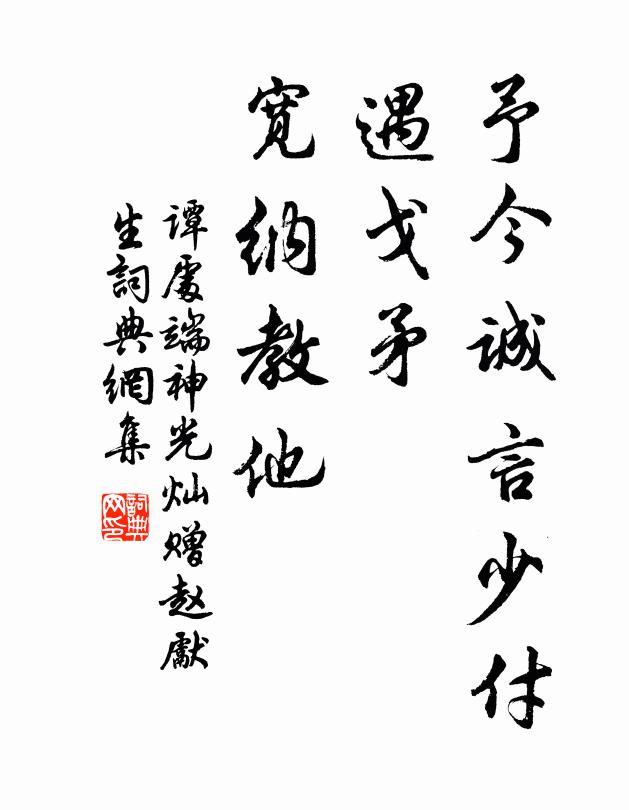 予今诚言少付
遇戈矛
宽纳教他
谭處端神光灿赠赵獻
生詞典網集
詞典网印